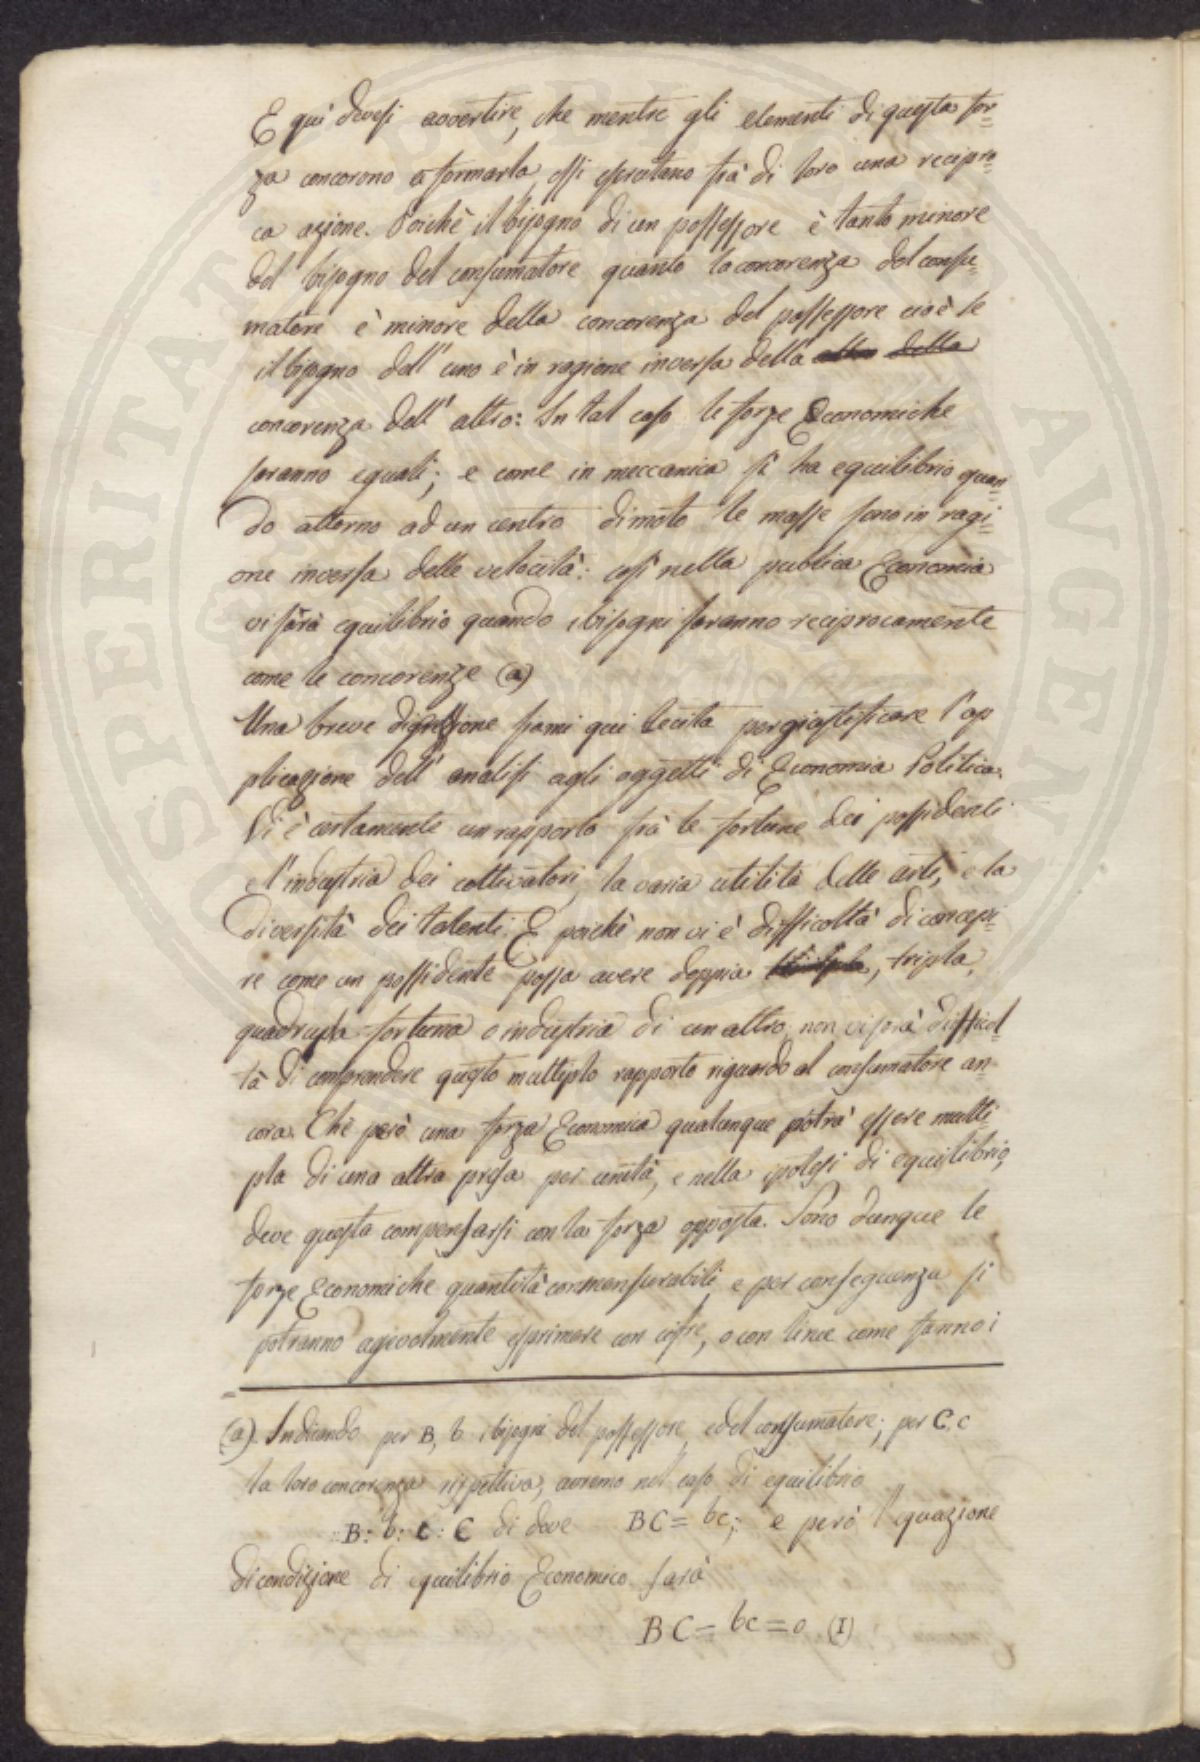 E qui devesi avvertire, che mentre gli elementi di questa for=
za concorono a formarla, essi esercitano frà di loro una recipro=
ca azione. Poichè il bisogno di un possessore è tanto minore
del bisogno del consumatore quanto la concorenza del consu=
matore è minore della concorenza del possessore cioè se
il bisogno dell' uno è in ragione inversa della della
concorenza dell' altro: In tal caso le forze Economiche
saranno eguali; e come in meccanica si ha equilibrio quan=
do attorno ad un centro di moto le masse sono in ragi=
one inversa delle velocità: così nella publica Economia
vi sarà equilibrio quando i bisogni saranno reciprocamente
come le concorenze (a)
Una breve digressione siami qui lecita per giustificare l'ap
plicazione dell' analisi agli oggetti di Economia Politica.
Vi è certamente un rapporto frà le fortune dei possidenti
e l'industria dei coltivatori, la varia utilità delle arti, e la
diversità dei talenti. E poichè non vi è difficoltà di concepi=
re come un possidente possa avere doppia, tripla,
quadrupla fortuna o industria di un altro, non vi sarà difficol=
tà di comprendere questo multiplo rapporto riguardo al consumatore an
cora. Che però una forza Economica qualunque potrà essere multi=
pla di una altra presa per unità, e nella ipotesi di equilibrio,
deve questa compensarsi con la forza opposta. Sono dunque le
forze Economiche quantità commensurabili, e per conseguenza si
potranno agevolmente esprimere con cifre, o con linee come fanno i
(a) Indicando per B, b i bisogni del possessore, e del consumatore; per C, c
la loro concorenza rispettiva, avremo nel caso di equilibrio
:: B : b : c : C di dove BC = bc; e però l'equazione
di condizione di equilibrio Economico sarà
BC = bc = o (I)